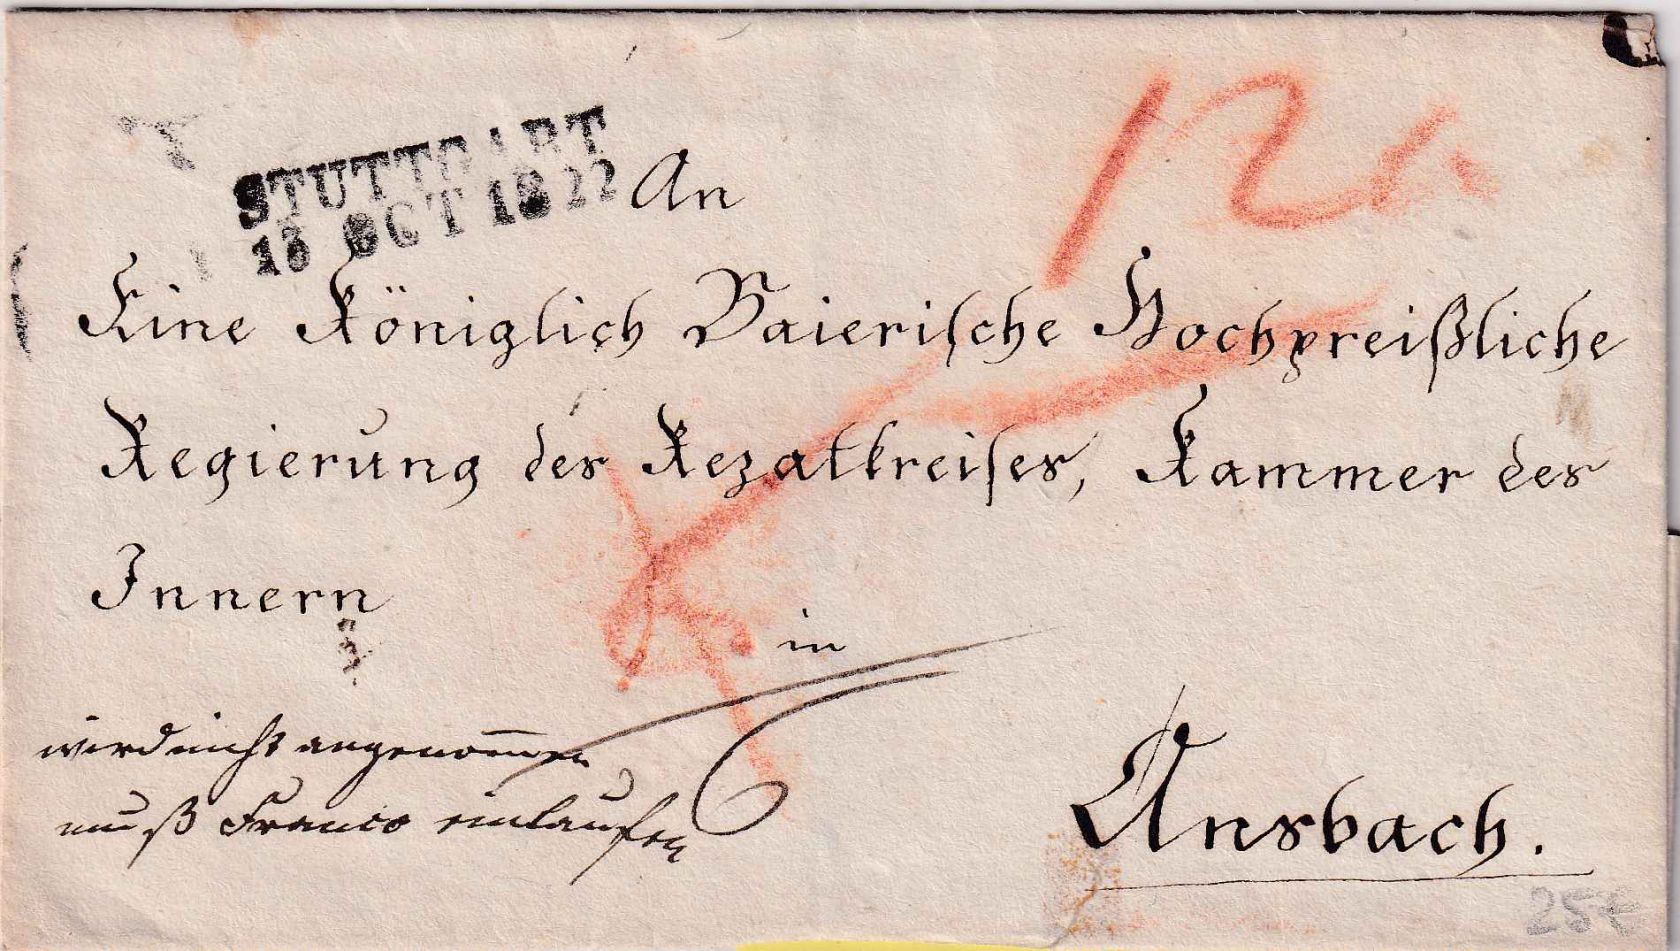 STUTTGART
13 OCT 1822
An
Eine Königlich Baierische Hochpreißliche
Regierung des Rezatkreises, Kammer des
Innern
in
wird nicht angenom̅en
muß Franco einlaufen
6
Ansbach.
12
25€